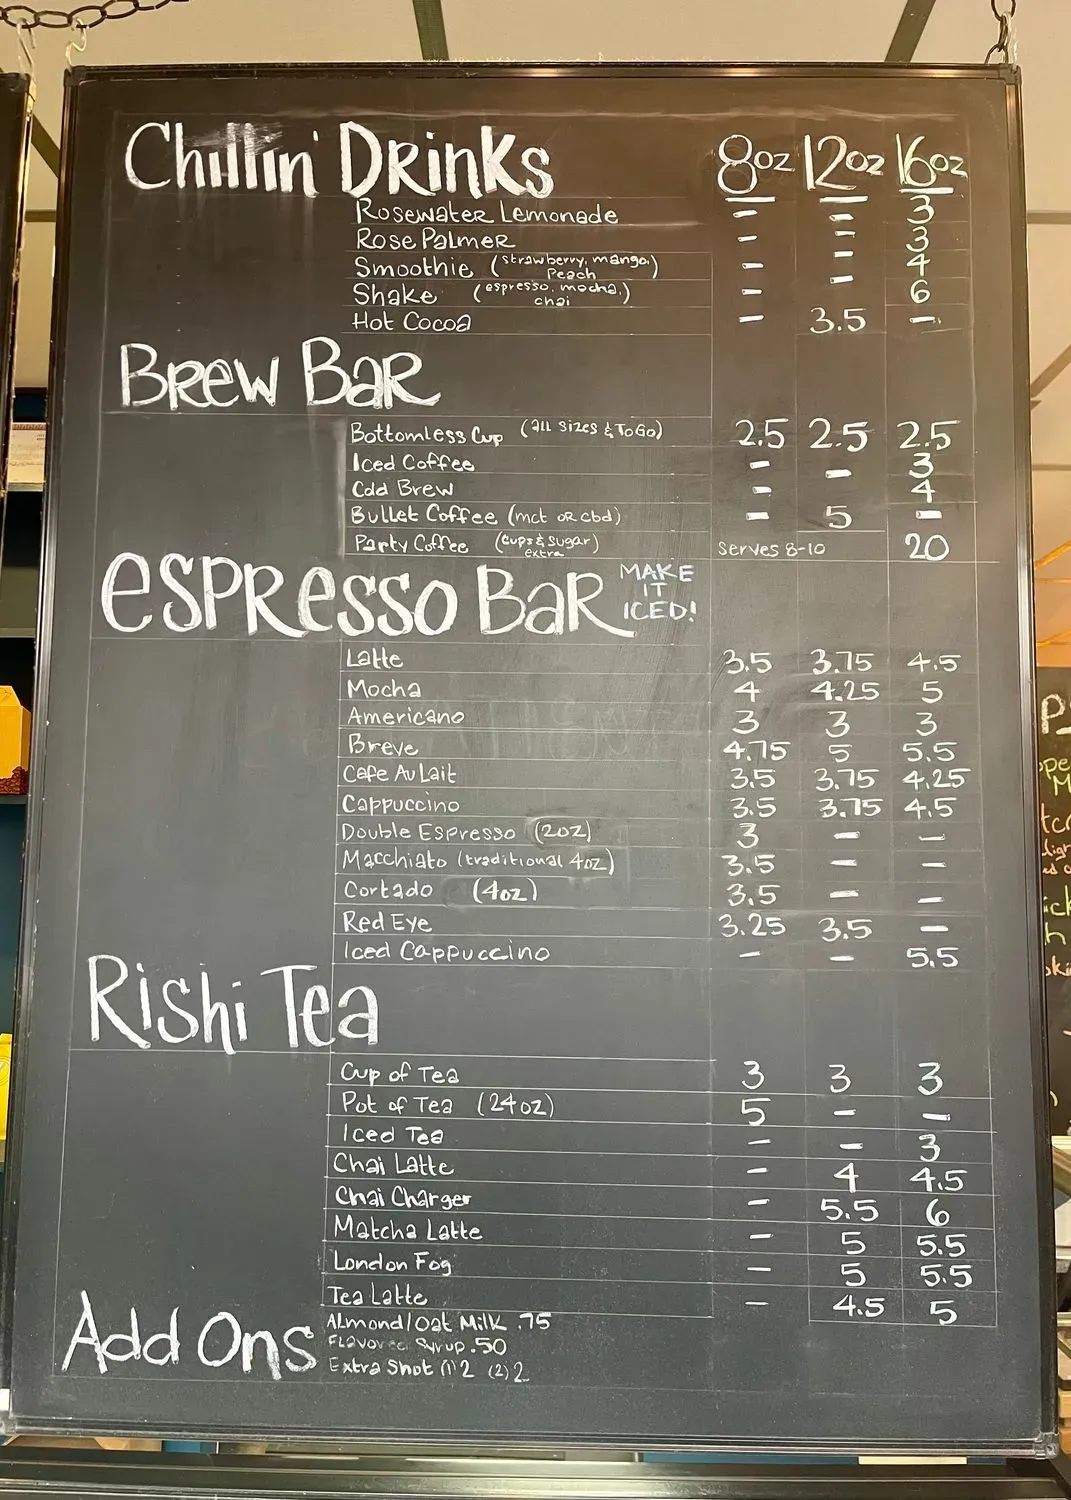 Chillin' Drinks 8oz 12oz 16oz
Rosewater Lemonade - - 3
Rose Palmer - - 3
Smoothie (strawberry, mango, Peach) - - 4
Shake (espresso, mocha, chai) - - 6
Hot Cocoa - 3.5 -
Brew Bar
Bottomless Cup (all sizes & To Go) 2.5 2.5 2.5
Iced Coffee - - 3
Cold Brew - - 4
Bullet Coffee (mct or cbd) - 5 -
Party Coffee (cups & sugar) extra Serves 8-10 20
Espresso Bar MAKE IT ICED!
Latte 3.5 3.75 4.5
Mocha 4 4.25 5
Americano 3 3 3
Breve 4.75 5 5.5
Cafe Au Lait 3.5 3.75 4.25
Cappuccino 3.5 3.75 4.5
Double Espresso (2oz) 3 - -
Macchiato (traditional 4oz) 3.5 - -
Cortado (4oz) 3.5 - -
Red Eye 3.25 3.5 -
Iced Cappuccino - - 5.5
Rishi Tea
Cup of Tea 3 3 3
Pot of Tea (24oz) 5 - -
Iced Tea - - 3
Chai Latte - 4 4.5
Chai Charger - 5.5 6
Matcha Latte - 5 5.5
London Fog - 5 5.5
Tea Latte - 4.5 5
Add Ons
Almond/Oat Milk .75
Flavored Syrup .50
Extra Shot (1) 2 (2) 2